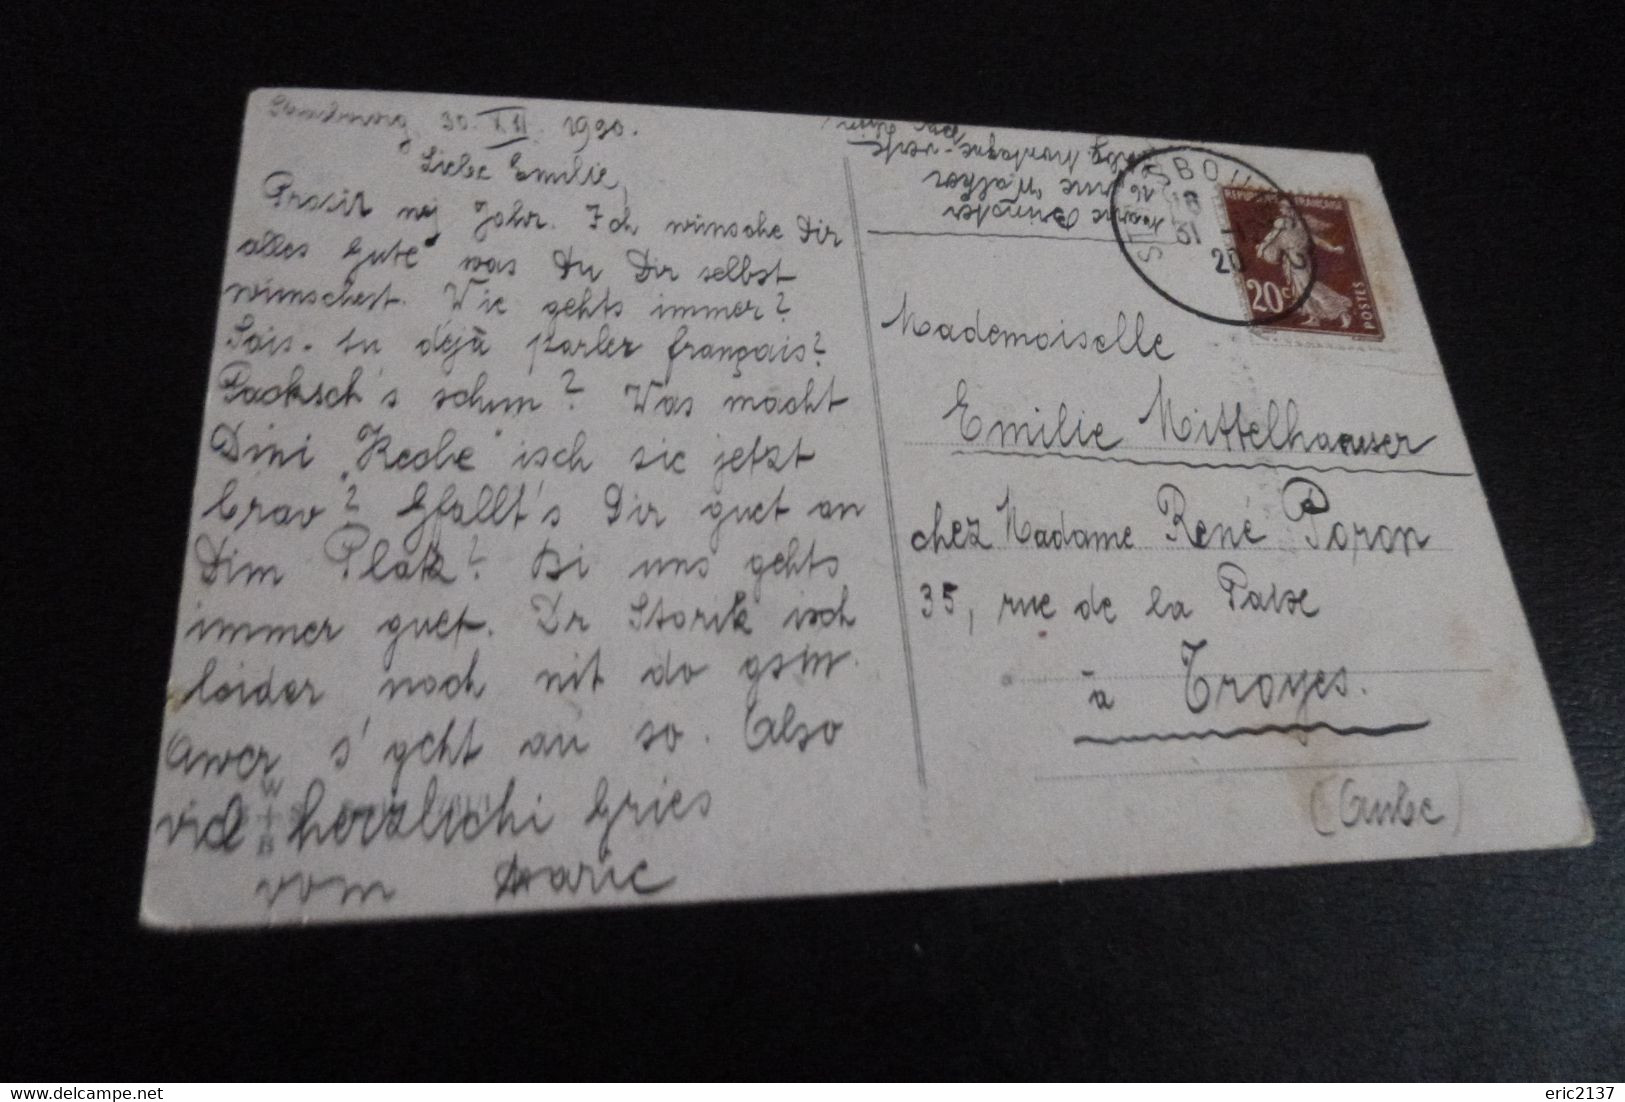 Strasbourg, 30. XII. 1920.
Liebe Emilie,
Prosit nej Johr. Ich winsche Dir
alles Gute was Du Dir selbst
winschest. Wie gehts immer?
Sais-tu déjà parler français?
Packsch's schun? Was macht
Dini "Keche" isch sie jetzt
brav? Gfallt's Dir guet an
Dim Platz? Bi uns gehts
immer guet. Dr Storik isch
leider noch nit do gsin.
Awer s'geht au so. Also
viel herzlichi Gries
vom Marie
Marie
rue Malher
montagne-verte
STRASBOU
18
31
20
REPUBLIQUE FRANÇAISE
20c
POSTES
Mademoiselle
Emilie Mittelhaeuser
chez Madame René Poron
35, rue de la Paix
à Troyes.
(Aube)
eric2137